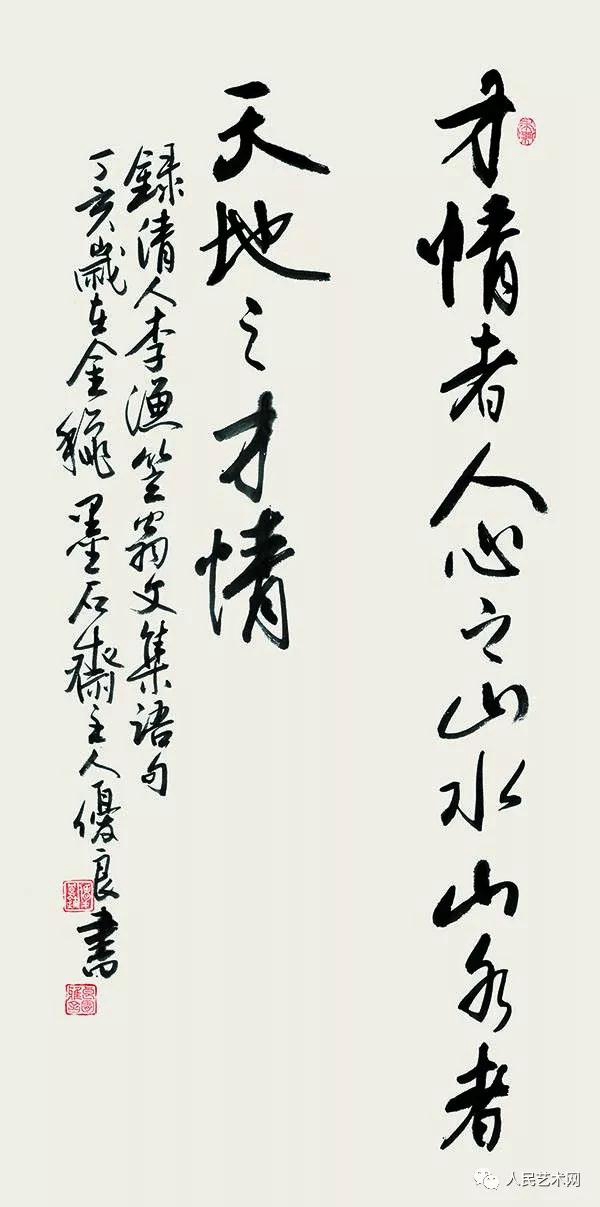 才情者人心之山水山水者
天地之才情
録清人李漁笠翁文集語句
丁亥歲在金穐墨石齋主人優良書
人民艺术网